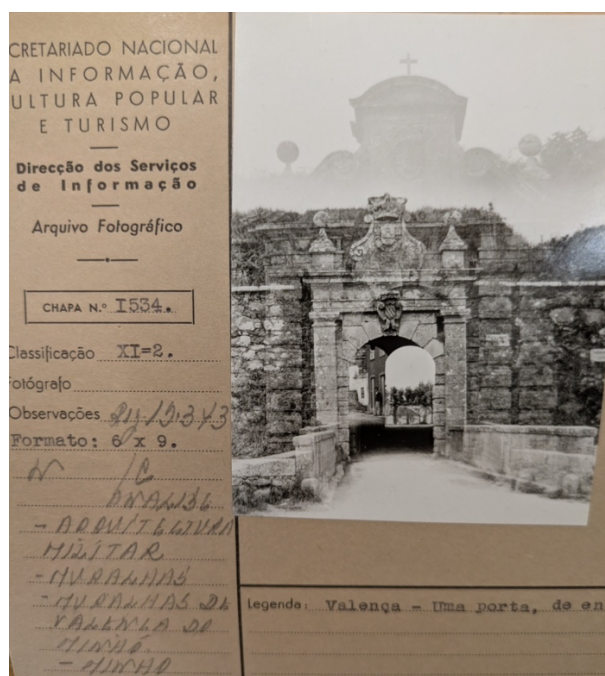 CRETARIADO NACIONAL
A INFORMAÇÃO,
ULTURA POPULAR
E TURISMO
Direcção dos Serviços
de Informação
Arquivo Fotográfico
CHAPA N.º I534.
Classificação XI=2.
Fotógrafo
Observações
Formato: 6 x 9.
- ARQUITECTURA
MILITAR
- MURALHAS
- MURALHAS DE
VALENÇA DO
MINHO.
- MINHO
Legenda: Valença - Uma porta, de en